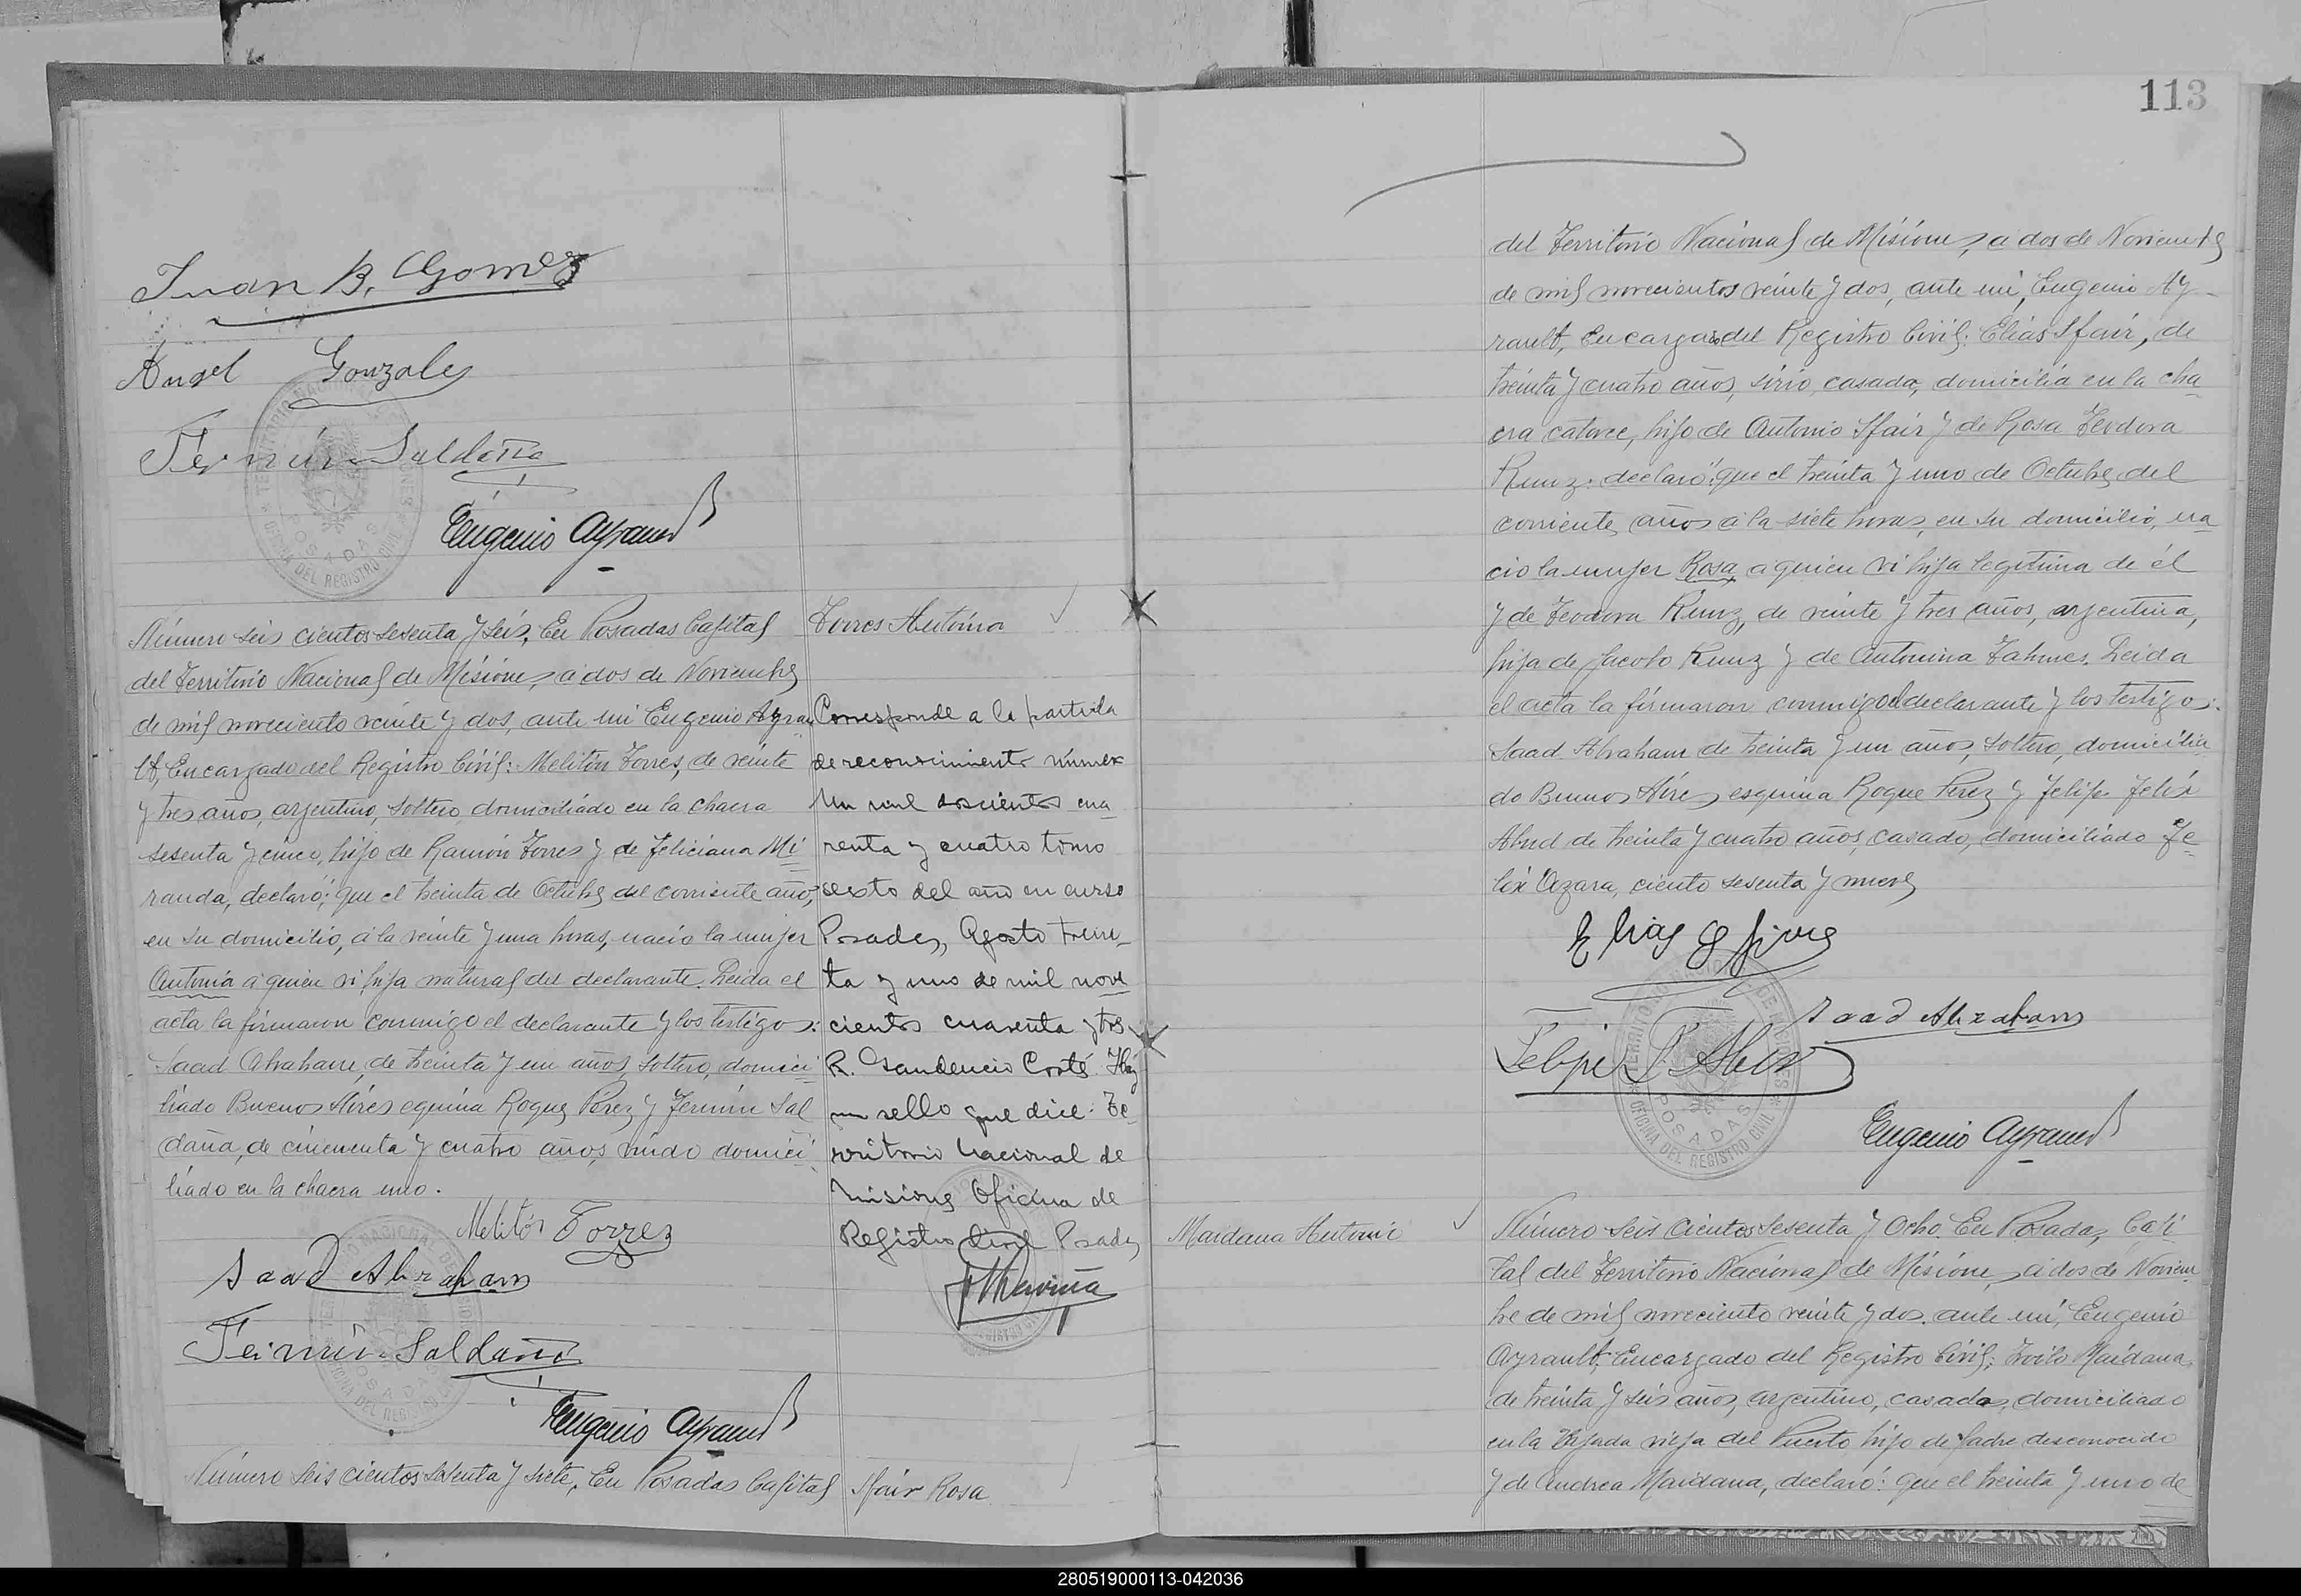 Juan B. Gomez
Angel Gonzales
Fermín Saldaña
Eugenio Ayrault
Número seis cientos sesenta y seis, En Posadas Capital
del Territorio Nacional de Misiones, a dos de Noviembre
de mil noveciento veinte y dos, ante mi Eugenio Ayrau
lt, Encargado del Registro Civil: Melitón Torres, de veinte
y tres años, argentino, soltero, domiciliado en la chacra
sesenta y cinco, hijo de Ramón Torres y de Feliciana Mi
randa, declaró: que el treinta de Octubre del corriente año,
en su domicilio, a la veinte y una horas, nació la mujer
Antonia a quien vi hija natural del declarante. Leida el
acta la firmaron conmigo el declarante y los testigos:
Saad Abraham, de treinta y un años, soltero, domici
liado Buenos Aires equina Roque Perez y Fermín Sal
daña, de cincuenta y cuatro años, viudo domici
liado en la chacra uno.
Melitón Torrez
Saad Abraham
Fermín Saldaña
Eugenio Ayrault
Número seis cientos sesenta y siete, En Posadas Capital
Torres Antonia
Corresponde a la partida
de reconocimiento número
Un mil doscientos cua
renta y cuatro tomo
sexto del año en curso
Posadas, Agosto trein
ta y uno de mil nove
cientos cuarenta y tres
R. Gaudencio Cortés. Hay
un sello que dice: Te
rritorio Nacional de
Misiones Oficina de
Registro Civil Posadas
Sfair Rosa
113
del Territorio Nacional de Misiones, a dos de Noviembre
de mil novecientos veinte y dos, ante mí, Eugenio Ay
rault, Encargado del Registro Civil: Elías Sfair, de
treinta y cuatro años, sirio, casado, domicilia en la cha
cra catorce, hijo de Antonio Sfair y de Rosa Teodora
Kunz: declaró: que el treinta y uno de Octubre del
corriente años a la siete horas, en su domicilio, na
cio la mujer Rosa a quien vi hija legitima de él
y de Teodora Kunz, de veinte y tres años, argentina,
hija de Jacobo Kunz y de Antonina Tahmes. Leida
el acta la firmaron conmigo el declarante y los testigos:
Saad Abraham de treinta y un años, soltero, domicilia
do Buenos Aires esquina Roque Perez y Felipe Felix
Abud de treinta y cuatro años, casado, domiciliado Fe
lix Azara, ciento sesenta y nueve
Elias Sfair
Saad Abraham
Felipe F. Abud
Eugenio Ayrault
Maidana Antonio
Número seis cientos sesenta y Ocho. En Posadas, Capi
tal del Territorio Nacional de Misiones, a dos de Noviem
bre de mil noveciento veinte y dos, ante mí, Eugenio
Ayrault, Encargado del Registro Civil; Zoilo Maidana,
de treinta y seis años, argentino, casado, domiciliado
en la Bajada vieja del Puerto hijo de padre desconocido
y de Andrea Maidana, declaró: que el treinta y uno de
280519000113-042036